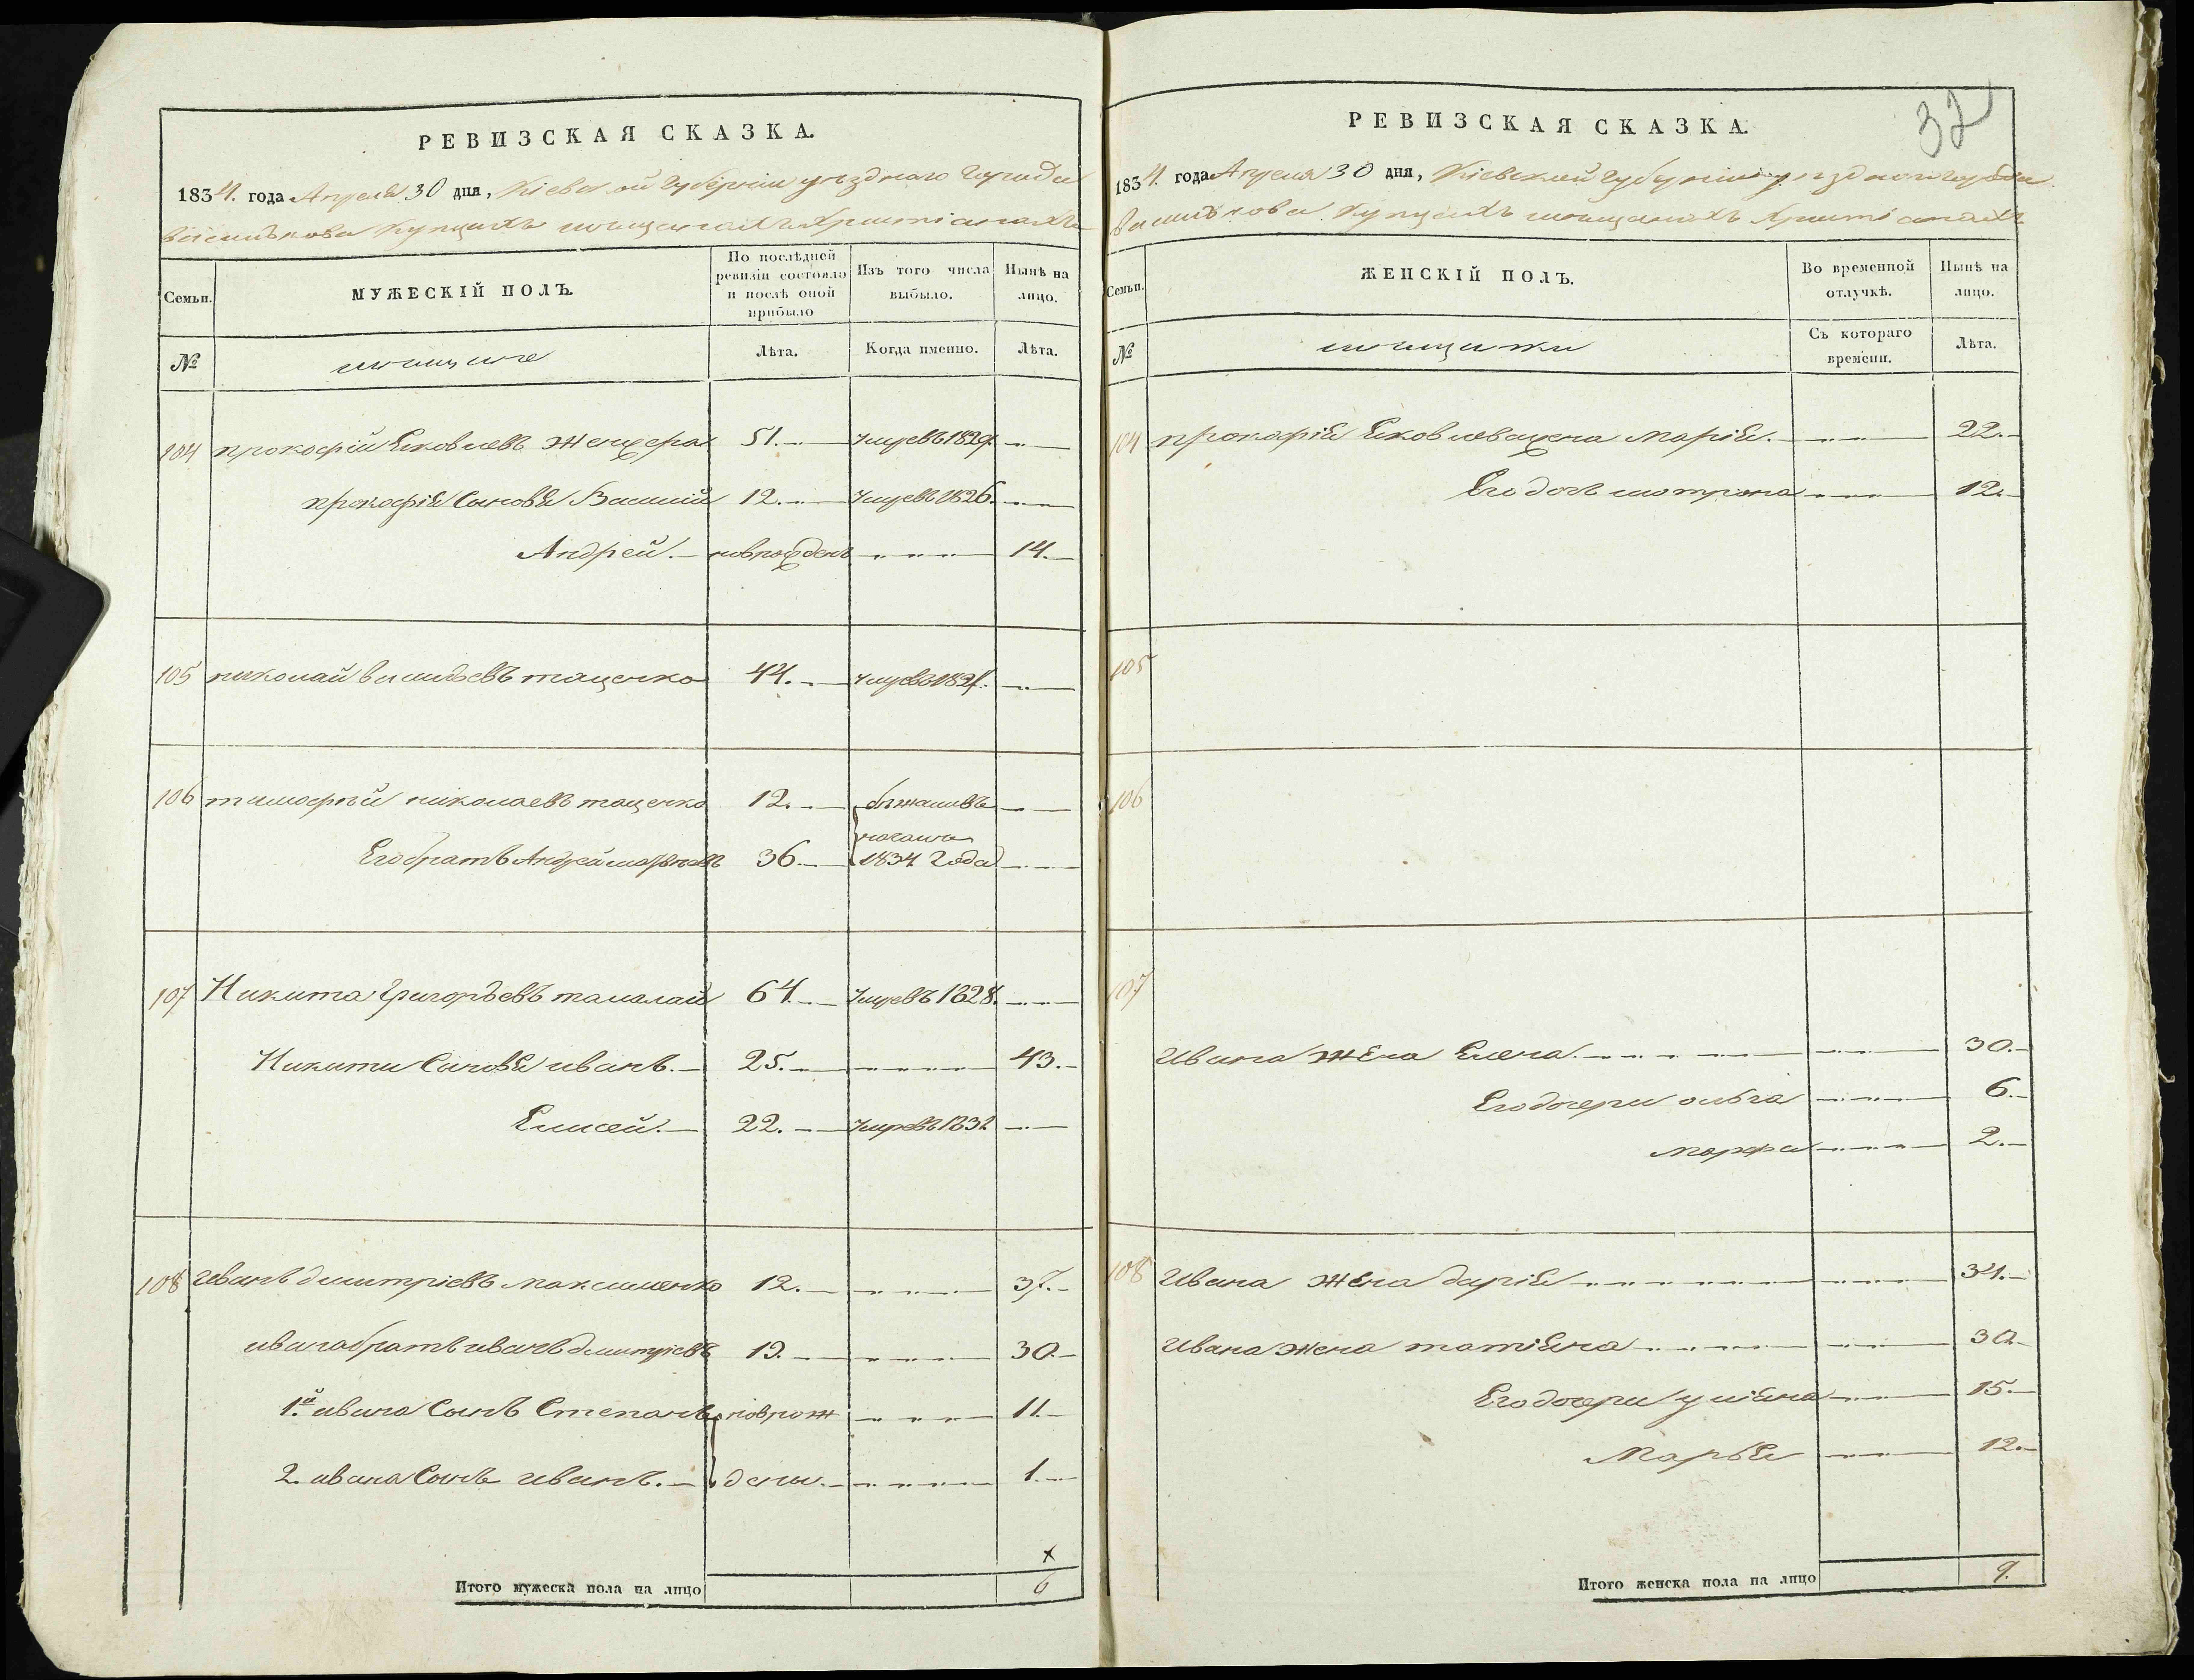 РЕВИЗСКАЯ СКАЗКА.
1834. года Апреля 30 дня, Кіевской Губерніи уезднаго города
василькова Купцахъ мещанахъ Христіанахъ
Семьи.
МУЖЕСКІЙ ПОЛЪ.
По послѣдней ревизіи состояло и послѣ оной прибыло
Изъ того числа выбыло.
Нынѣ на лицо.
№
мещане
Лѣта.
Когда именно.
Лѣта.
104 прокофій Яковлевъ 51. умеръ 1829.
прокофія Сыновья Василий 12. умеръ 1826.
Андрей. новрожденъ 14.
105 николай васильевъ таценко 44. умеръ
106 тимофѣй николаевъ таценко 12. бежали въ
начале
Его братъ Андрей 36. 1834 года
107 Никита Григорьевъ тамалай 64. умеръ 1828.
Никити Сыновья иванъ. 25. 43.
Елисей. 22. умеръ
108 Иванъ дмитріевъ максименко 12. 37.
ивана братъ иванъ дмитріевъ 30.
1.й ивана Сынъ Степанъ новрож 11.
2. ивана Сынъ иванъ. дены. 1.
х
Итого мужеска пола на лицо 6
32
РЕВИЗСКАЯ СКАЗКА.
1834. года Апреля 30 дня, Кіевской Губерніи уезднаго города
Василькова Купцахъ мещанахъ Христіанахъ
Семьи.
ЖЕНСКІЙ ПОЛЪ.
Во временной отлучкѣ.
Нынѣ на лицо.
№
мещанки
Съ котораго времени.
Лѣта.
104 прокофія Яковлева жена Марія. 22.
Его дочь мотрона 12.
105
106
107
Ивана жена Елена. 30.
Его дочери ольга 6.
марфа 2.
108 Ивана жена дарія 34.
Ивана жена татіяна 30.
Его дочери уліяна 15.
Марья 12.
Итого женска пола на лицо 9.